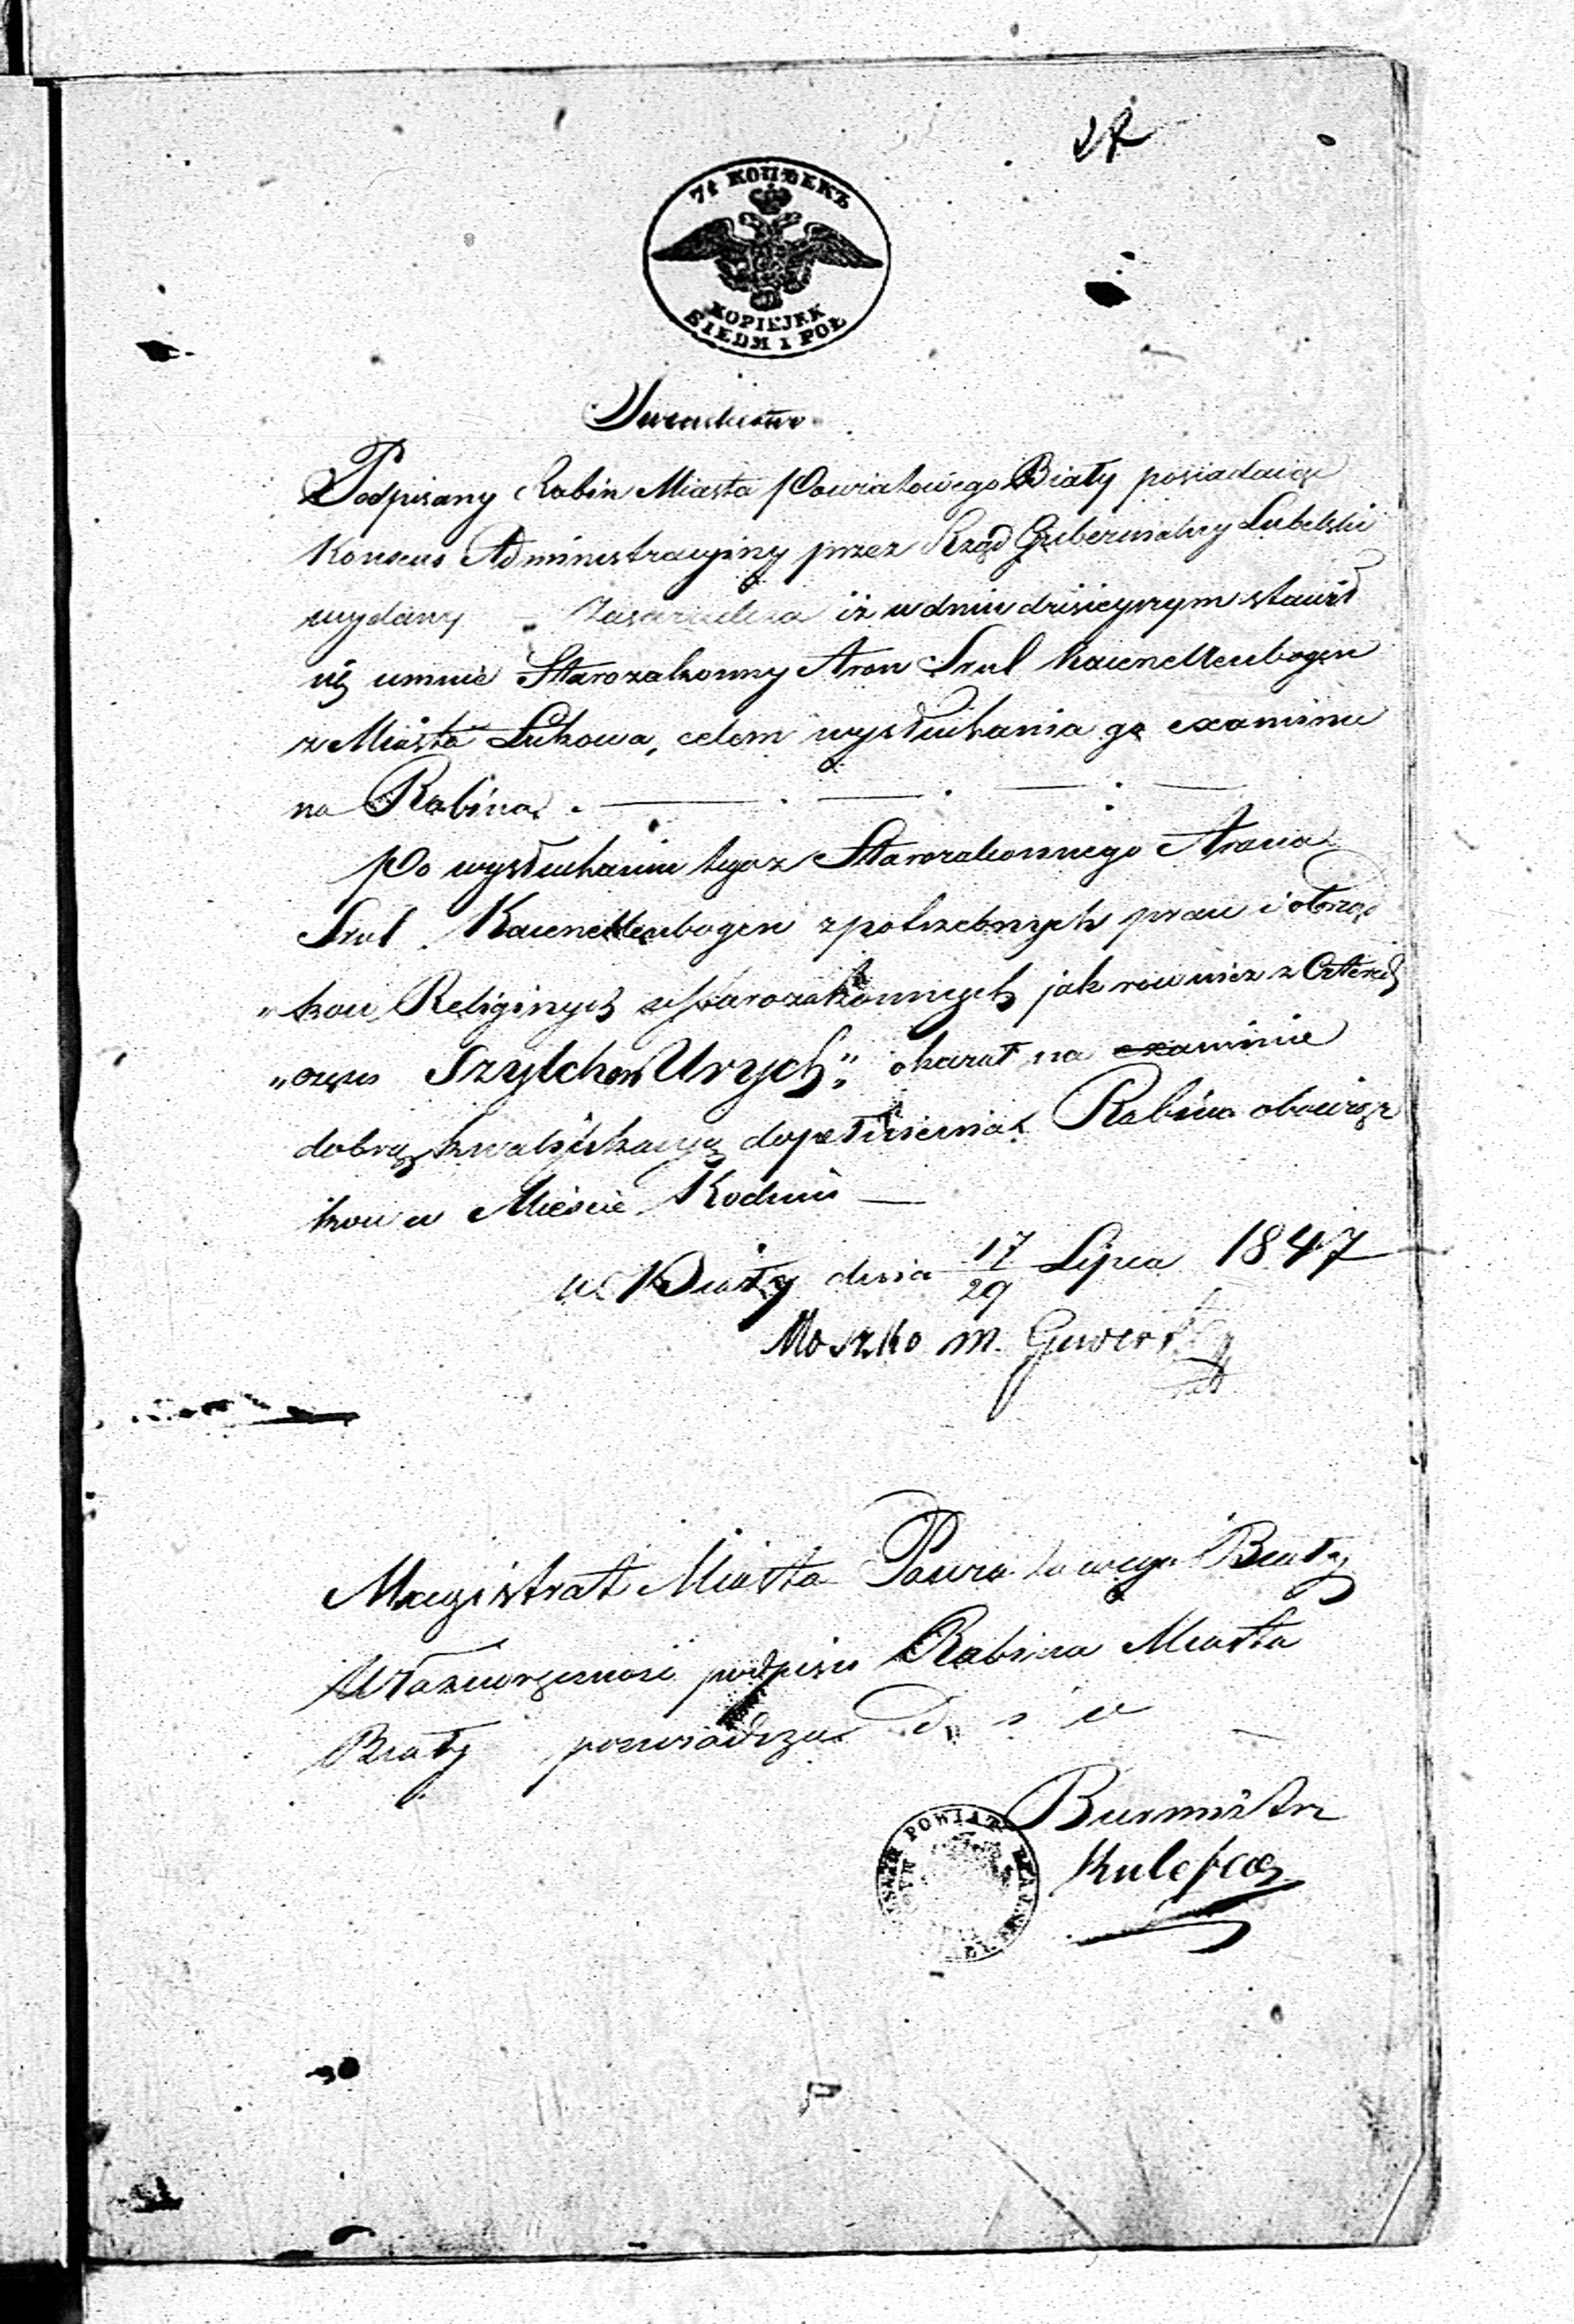 7½ КОПѢЕКЪ
KOPIEJEK
SIEDM I POŁ
Swiadectwo
Podpisany Rabin Miasta Powiatowego Biały posiadaiąc
Konsens Administracyiny przez Rząd Gubernialny Lubelski
wydany zaswiadcza iż w dniu dzisieyszym stawił
się umnie Starozakonny Aron Srul Kacenellenbogen
z Miasta Łukowa, celem wysłuchania go examinu
na Rabina
Po wysłuchaniu tegoż Starozakonnego Arona
Srul Kacenellenbogen z potrzebnych praw i obrząd
"kow Religinych Starozakonnych jak rowniez z Czterech
"częsci Szylchon Urych" okazał na examinie
dobrą kwalifikacyą dopełnienia Rabina obowiąz
kow w Miescie Kodniu
w Biały dnia 17/29 Lipca 1847
Moszko m.
Magistrat Miasta Powiatowego Biały
Własnoręcznosc podpisu Rabina Miasta
Biały poswiadcza
Burmistrz
POWIAT